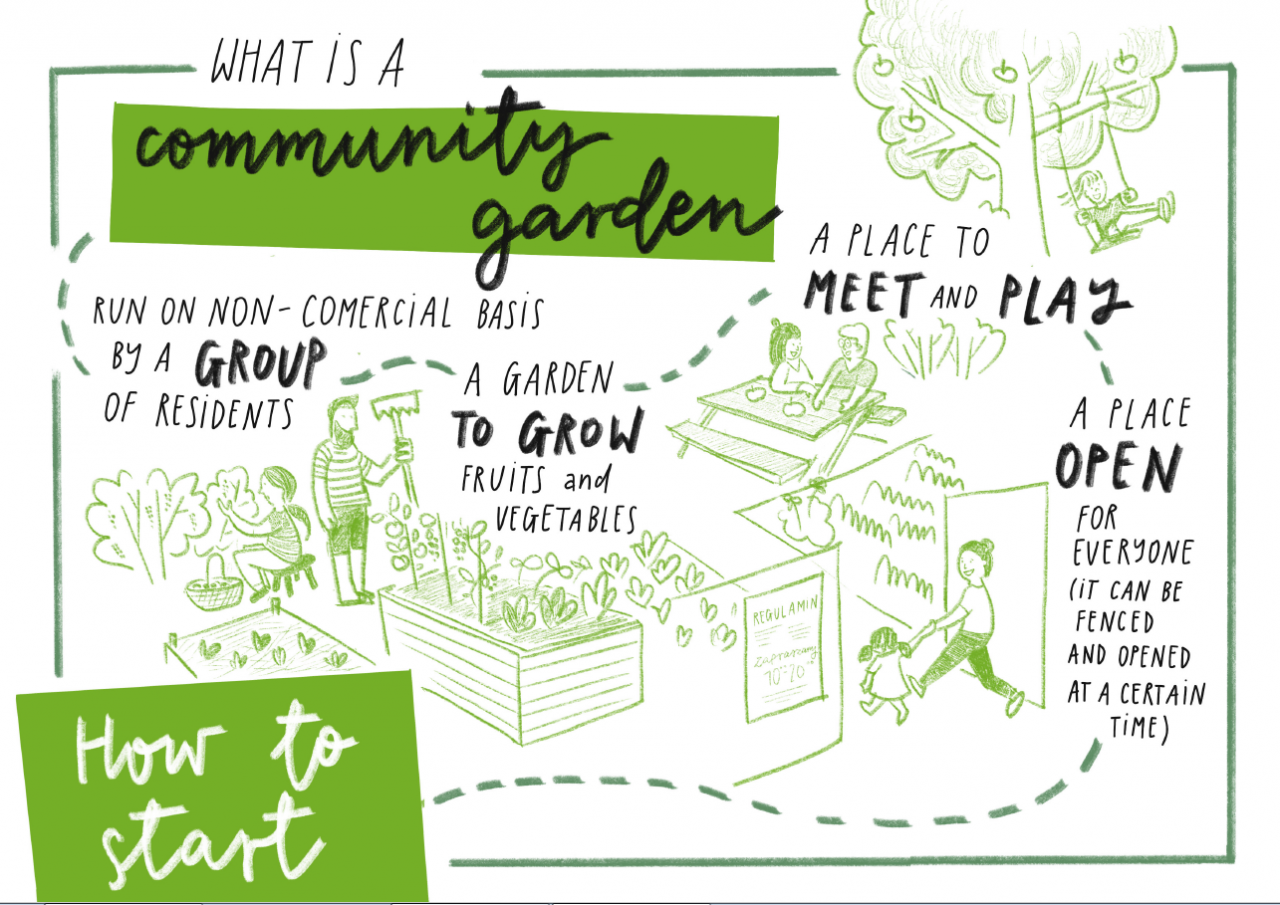 WHAT IS A
community
garden
RUN ON NON-COMERCIAL BASIS
BY A GROUP
OF RESIDENTS
A GARDEN
TO GROW
FRUITS and
VEGETABLES
A PLACE TO
MEET AND PLAY
A PLACE
OPEN
FOR
EVERYONE
(IT CAN BE
FENCED
AND OPENED
AT A CERTAIN
TIME)
REGULAMIN
zapraszamy
How to
start